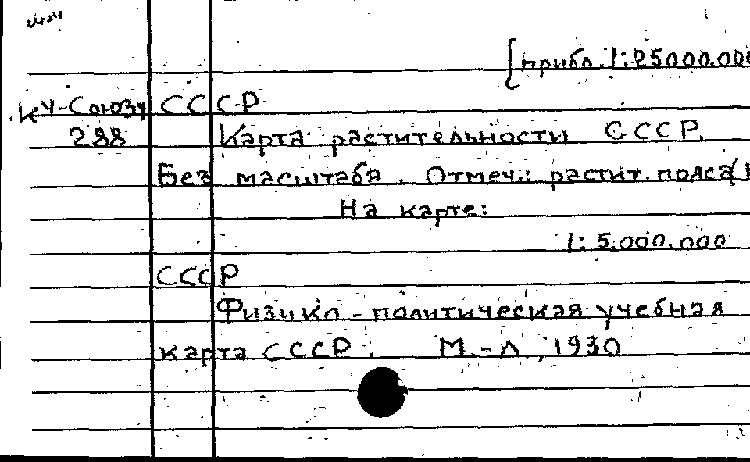 [прибл. 1:25000.000
К4-Союзу СССР
288 Карта растительности СССР.
Без масштаба. Отмеч.: растит. пояса
На карте:
1:5.000.000
СССР
Физико-политическая учебная
карта СССР. М.-Л, 1930